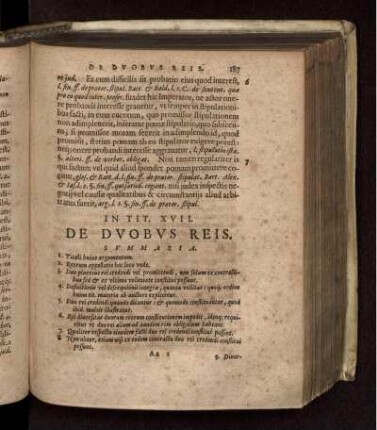 DE DVOBVS REIS. 187
re jud. Et cum difficilis sit probatio ejus quod interest, 6
l. fin. ff. de prætor. stipul. Bart. & Bald. l. 1. C. de sentent. quæ
pro eo quod inter. profer. suadet hîc Imperator, ne actor one-
re probandi interesse gravetur, ut semper in stipulationi-
bus facti, in eum eventum, quo promissor stipulationem
non adimpleverit, inseratur pœnæ stipulatio, quo subjecto
si promissor moram fecerit in adimplendo id, quod
promisit, statim pœnam ab eo stipulator exigere possit
nec onere probandi interesse aggravatur, l. stipulatio ista
§. alteri. ff. de verbor. obligat. Non tamen regulariter is 7
qui factum vel quid aliud spondet pœnam promittere co-
gitur, glos. & Bart. d. l. fin. ff. de prætor. stipulat. Bart. Alex.
& Jas. l. 2. §. fin. ff. qui satisd. cogant. nisi judex inspecto ne-
gotij vel causæ qualitatibus & circumstantijs aliud arbi-
tratus fuerit, arg. l. 1. §. fin. ff. de prætor. stipul.
IN TIT. XVII.
DE DVOBVS REIS.
SVMMARIA.
1. Tituli hujus argumentum.
2. Reorum appellatio hoc loco
3. Duo pluresve rei credendi vel promittendi, non solùm ex contracti-
bus sed & ex ultima voluntate constitui possunt.
4. Definitionis vel descriptionis integræ, quanta utilitas: quis ordine
hujus tit. materia ab auctore explicetur.
5. Duo rei credendi quando dicantur: & quomodo constituantur, quod
ibid. multis illustratur.
6. Rei diversitas duorum reorum constitutionem impedit, ideoq; requi-
ritur ut duo rei aliam ad eandem rem obligatum habeant.
7. Qualiter respectu ejusdem facti duo rei credendi constitui possunt.
8. etiam uno et eodem contractu duo rei credendi constitui
possunt.
Aa 2 9. Diver-